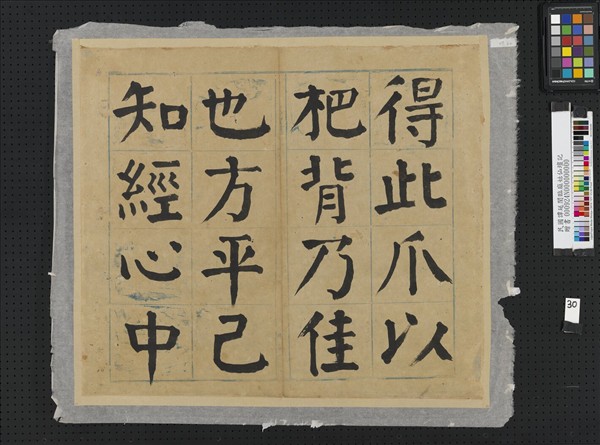 得此爪以
杷背乃佳
也方平已
知經心中
30